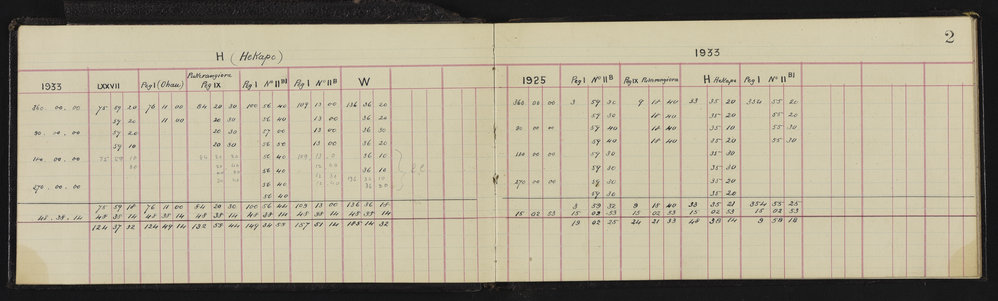 H (Hekapo)
1933 LXXVII Peg I (Ohau) Pukerangiora Peg IX Peg I No II BI Peg I No II B W
360.00.00 75 59 20 76 11 00 84 20 30 100 56 40 109 13 00 136 36 20
59 20 11 00 20 30 56 40 13 00 36 20
90.00.00 59 20 20 30 57 00 13 00 36 30
59 10 20 30 56 50 13 00 36 20
180.00.00 56 40 36 10
56 40 36 10
270.00.00 56 40
56 40
75 59 18 76 11 00 84 20 30 100 56 44 109 13 00 136 36 18
48.38.14 48 38 14 48 38 14 48 38 14 48 38 14 48 38 14 48 38 14
124 37 32 124 49 14 132 58 44 149 34 58 157 51 14 185 14 32
2
1933
1925 Peg I No II B Peg IX Pukerangiora H Hekapo Peg I No II BI
360 00 00 3 59 30 9 18 40 33 35 20 354 55 20
59 30 18 40 35 20 55 20
90 00 00 59 40 18 40 35 10 55 30
59 40 18 40 35 20 55 30
180 00 00 59 30 35 30
59 30 35 30
270 00 00 59 30 35 20
59 30 35 20
3 59 32 9 18 40 33 35 21 354 55 25
15 02 53 15 02 53 15 02 53 15 02 53 15 02 53
19 02 25 24 21 33 48 38 14 9 58 18